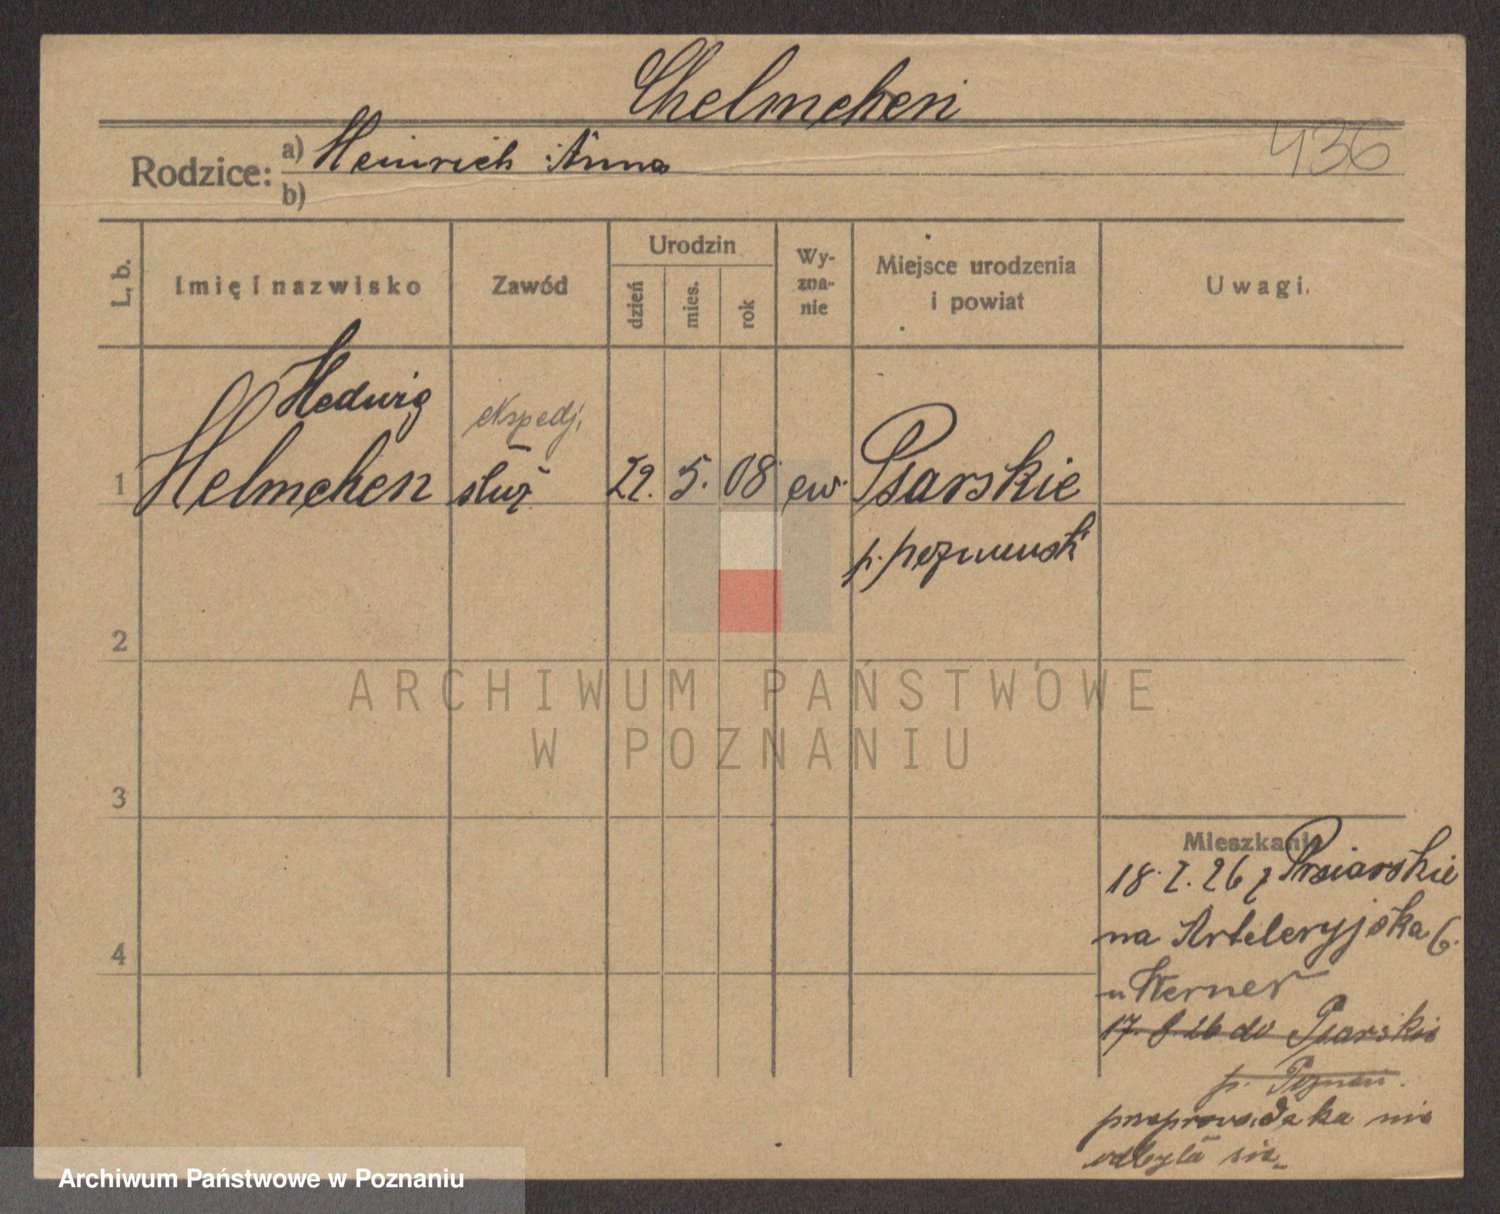 Chelmchen
436
Rodzice: a) Heinrich Anna
b)
L. b. Imię i nazwisko Zawód Urodzin dzień mies. rok Wy-zna-nie Miejsce urodzenia i powiat Uwagi.
Hedwig ekspedj.
1 Helmchen służ 22. 5. 08 ew. Psarskie
p. poznański
2
ARCHIWUM PAŃSTWOWE
W POZNANIU
3
Mieszkanie
18. I. 26 z Psiarskie
4 na Arteleryjska 6.
u Werner
17. 8. 26 do Psarskie
p. Poznań.
przeprowadzka nie
odbyła sie
Archiwum Państwowe w Poznaniu